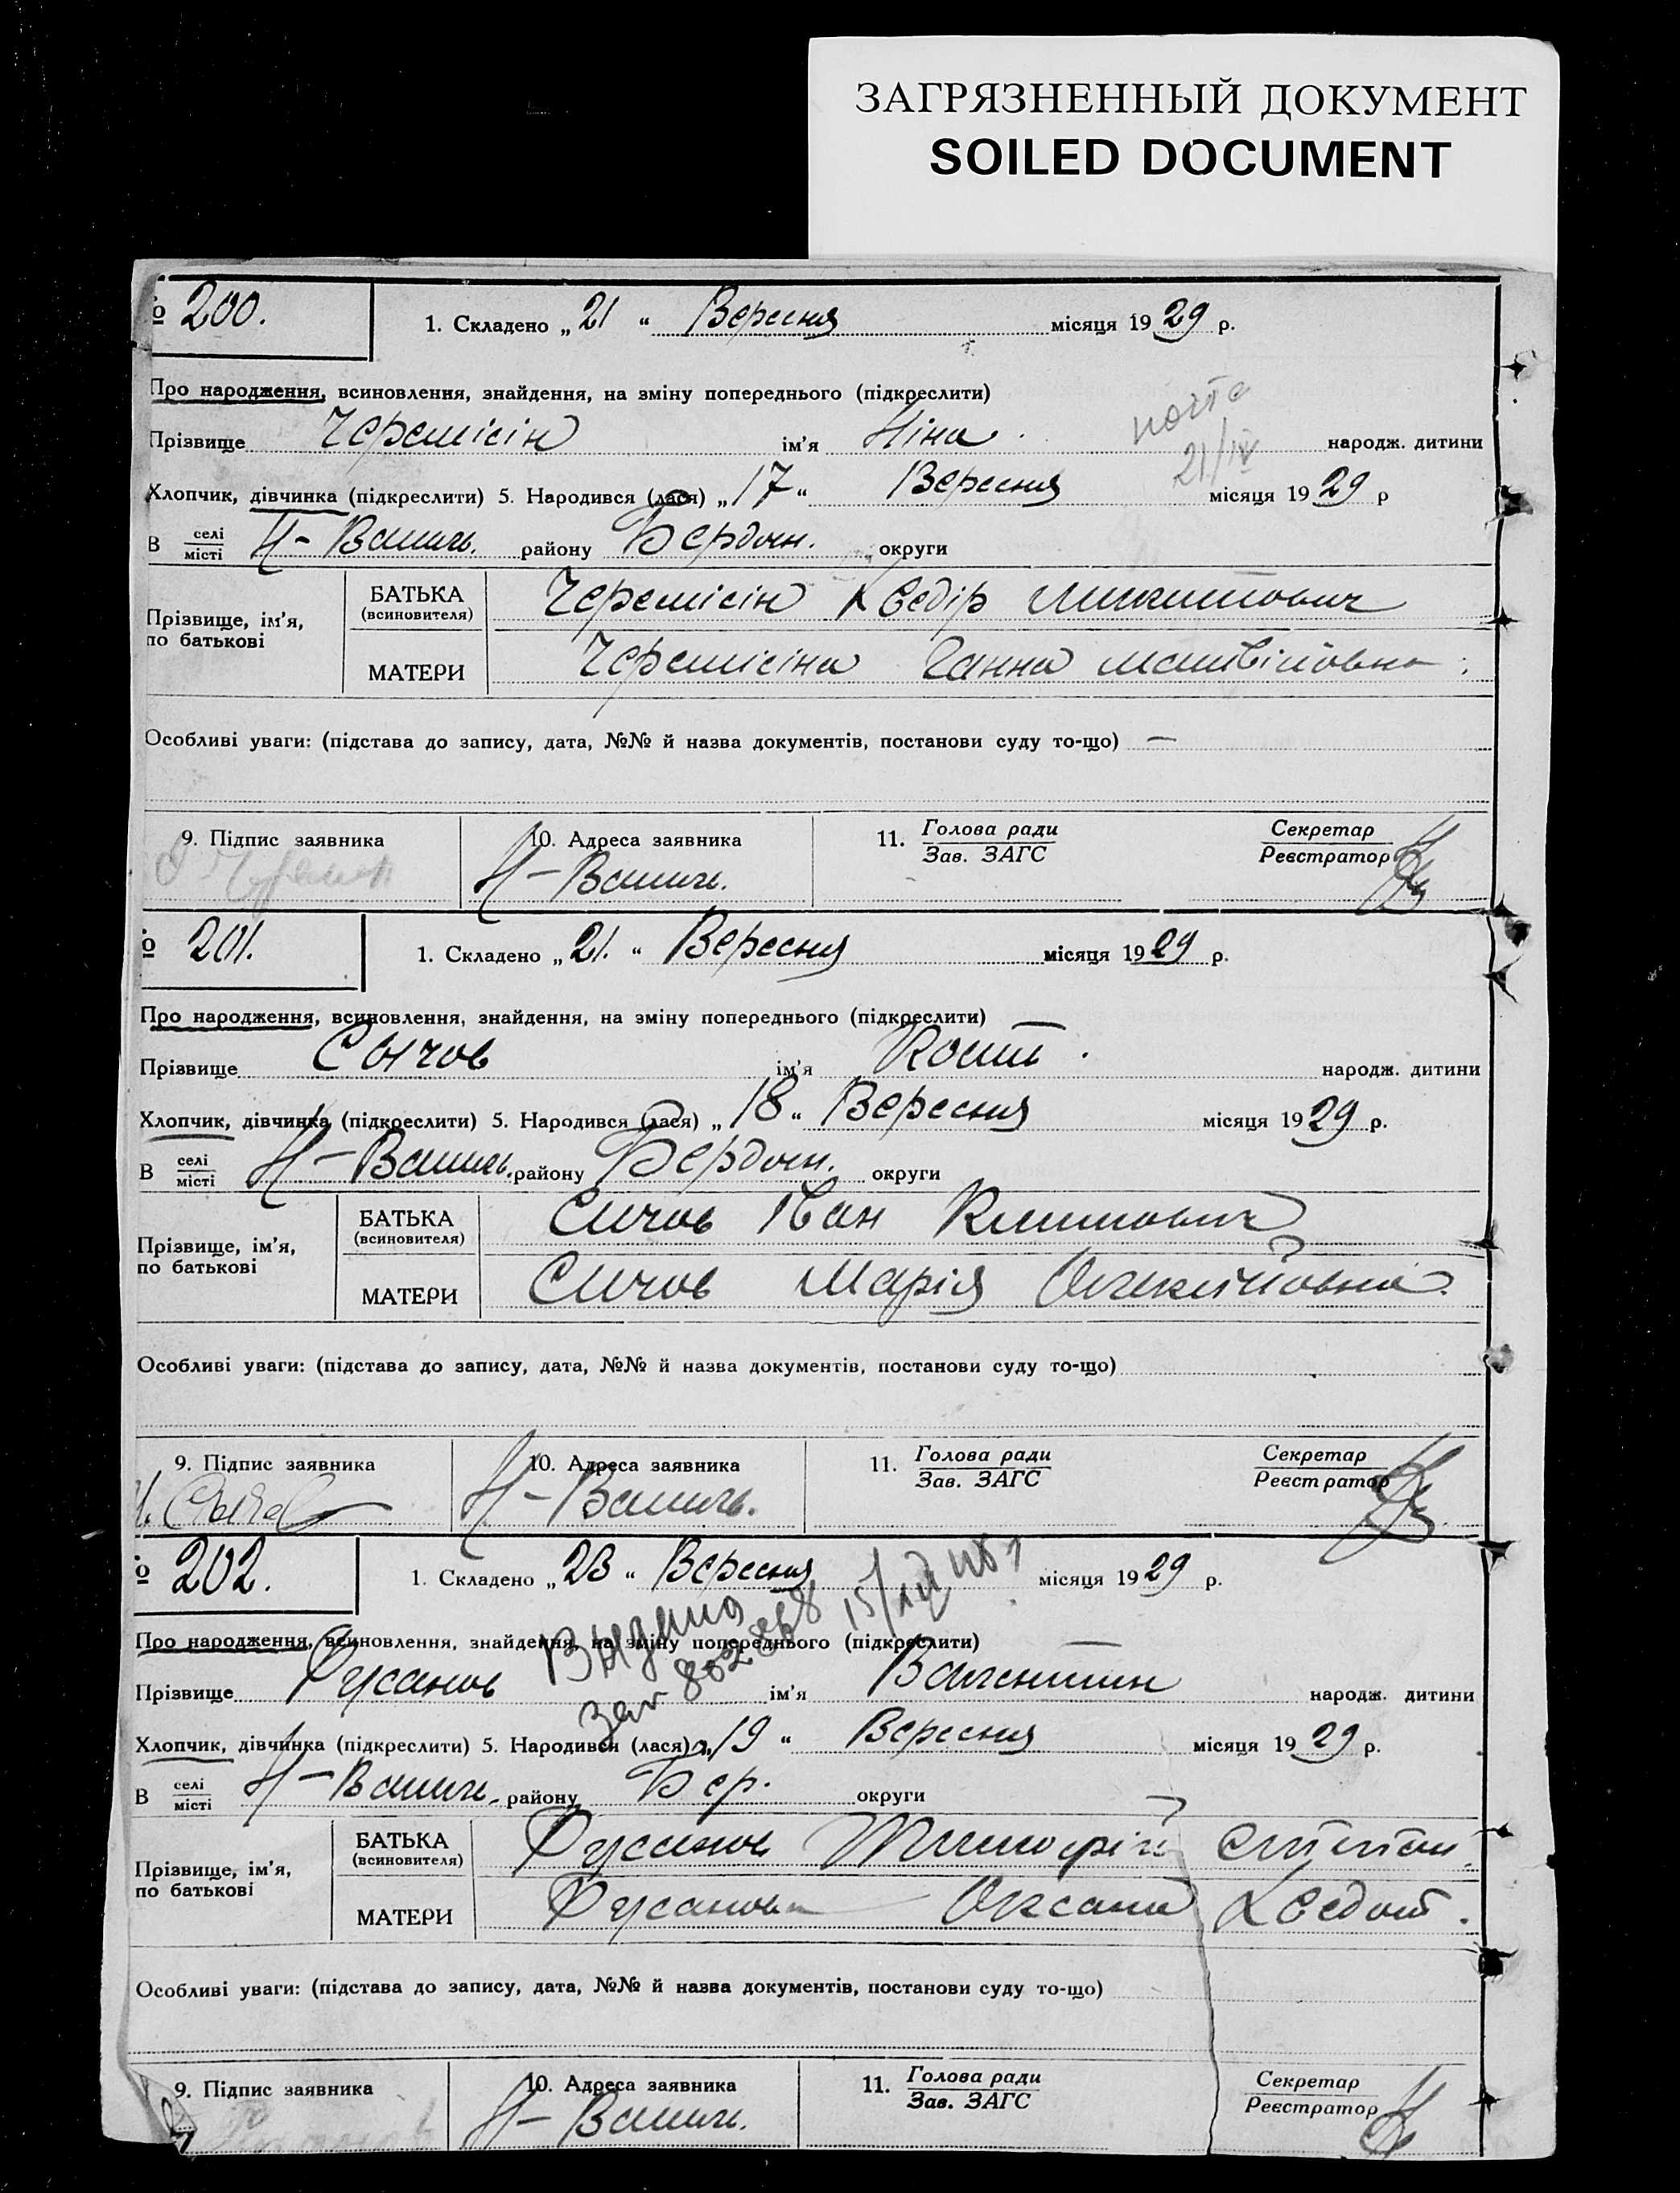 ЗАГРЯЗНЕННЫЙ ДОКУМЕНТ
SOILED DOCUMENT
№ 200.
1. Складено „ 21 “ Вересня місяця 1929 р.
Про народження, всиновлення, знайдення, на зміну попереднього (підкреслити)
Прізвище Черемісін ім'я Ніна . народж. дитини
21/IV
Хлопчик, дівчинка (підкреслити) 5. Народився (лася) „ 17 “ Вересня місяця 1929 р
В селі/місті Н- району Бердян. округи
Прізвище, ім'я, по батькові
БАТЬКА (всиновителя) Черемісін Хведір
МАТЕРИ Черемісіна Ганна Матвіївовна
Особливі уваги: (підстава до запису, дата, №№ й назва документів, постанови суду то-що) —
9. Підпис заявника
10. Адреса заявника
11. Голова ради / Зав. ЗАГС
Секретар / Реєстратор
№ 201.
1. Складено „ 21. “ Вересня місяця 1929 р.
Про народження, всиновлення, знайдення, на зміну попереднього (підкреслити)
Прізвище Сычов ім'я Кошт . народж. дитини
Хлопчик, дівчинка (підкреслити) 5. Народився (лася) „ 18 “ Вересня місяця 1929 р.
В селі/місті Н- району Бердян. округи
Прізвище, ім'я, по батькові
БАТЬКА (всиновителя) Сичов Іван Климович
МАТЕРИ Сичов Марія
Особливі уваги: (підстава до запису, дата, №№ й назва документів, постанови суду то-що)
9. Підпис заявника
10. Адреса заявника
11. Голова ради / Зав. ЗАГС
Секретар / Реєстратор
№ 202.
1. Складено „ 23 “ Вересня місяця 1929 р.
Выдано
Про народження, всиновлення, знайдення, на зміну попереднього (підкреслити)
Прізвище Русанов ім'я Валентин народж. дитини
Хлопчик, дівчинка (підкреслити) 5. Народився (лася) „ 19 “ Вересня місяця 1929 р.
В селі/місті Н- району Бер. округи
Прізвище, ім'я, по батькові
БАТЬКА (всиновителя) Русанов Тимофій Степан.
МАТЕРИ Русанова Оксана Хведот.
Особливі уваги: (підстава до запису, дата, №№ й назва документів, постанови суду то-що)
9. Підпис заявника
10. Адреса заявника
11. Голова ради / Зав. ЗАГС
Секретар / Реєстратор